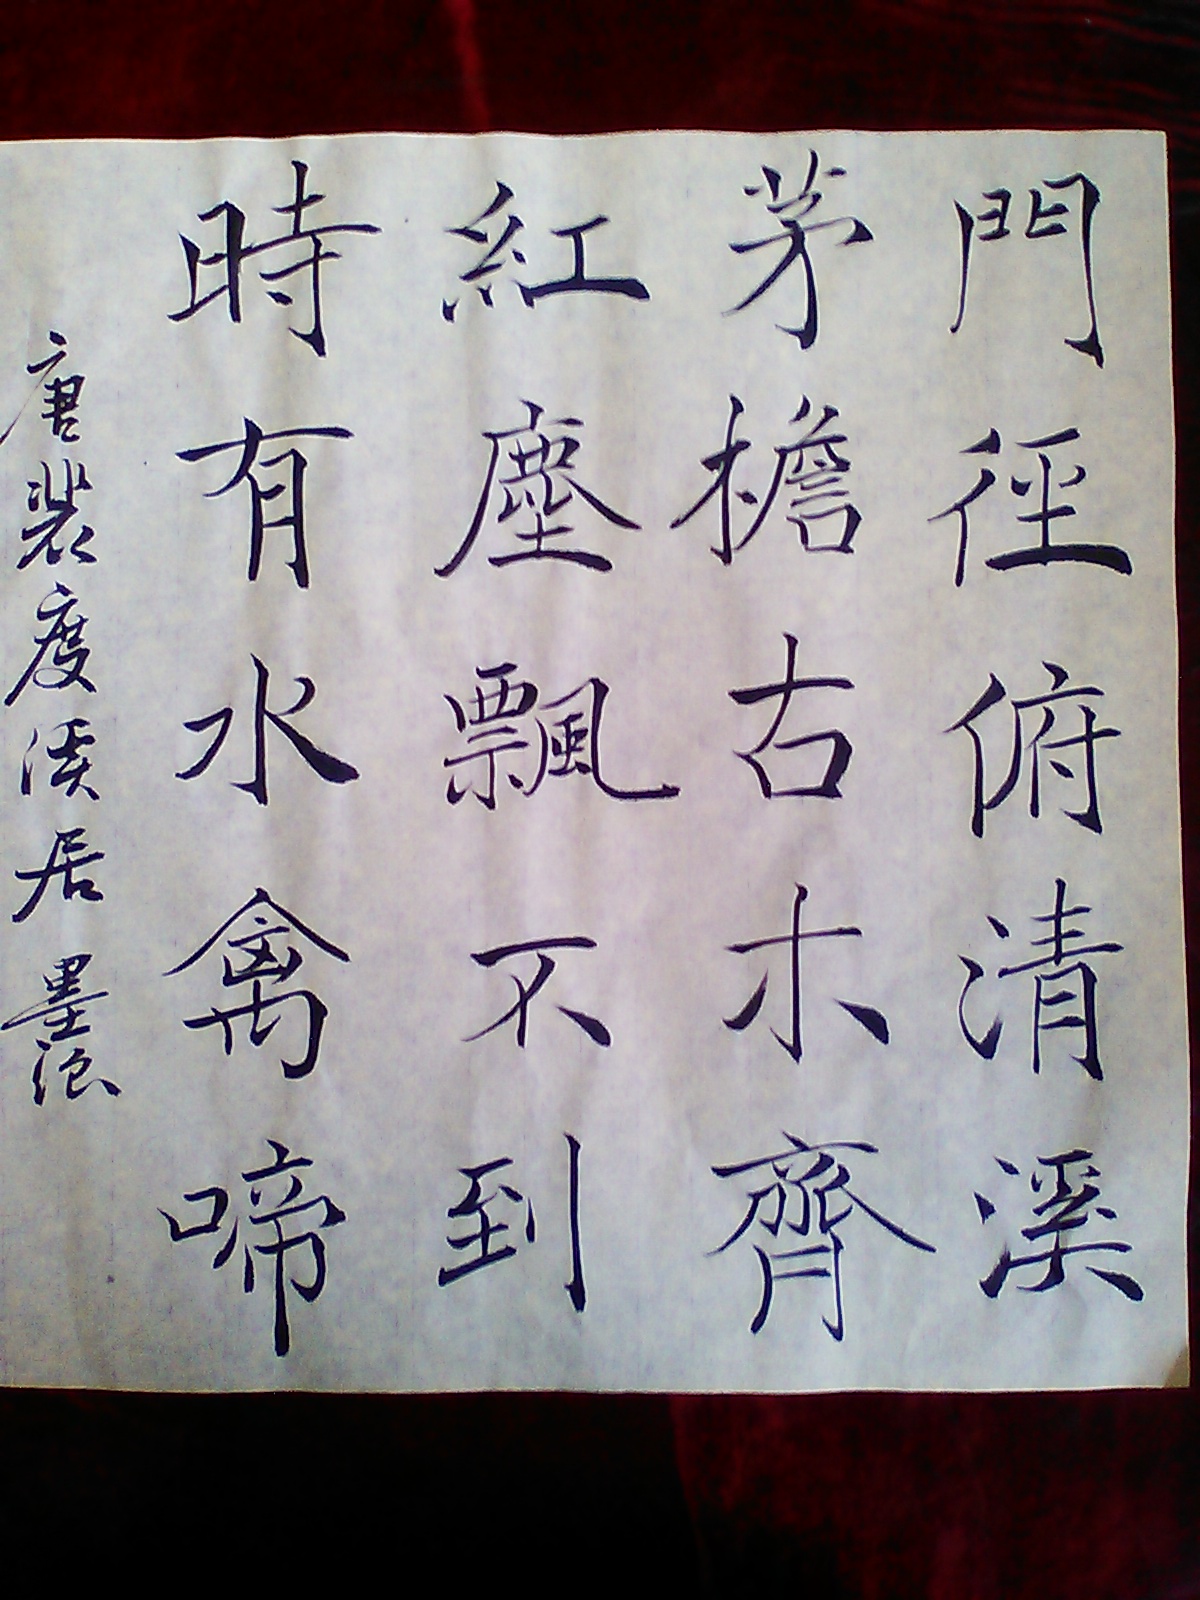 門徑俯清溪
茅檐古木齊
紅塵飄不到
時有水禽啼
唐裴度溪居 墨浪